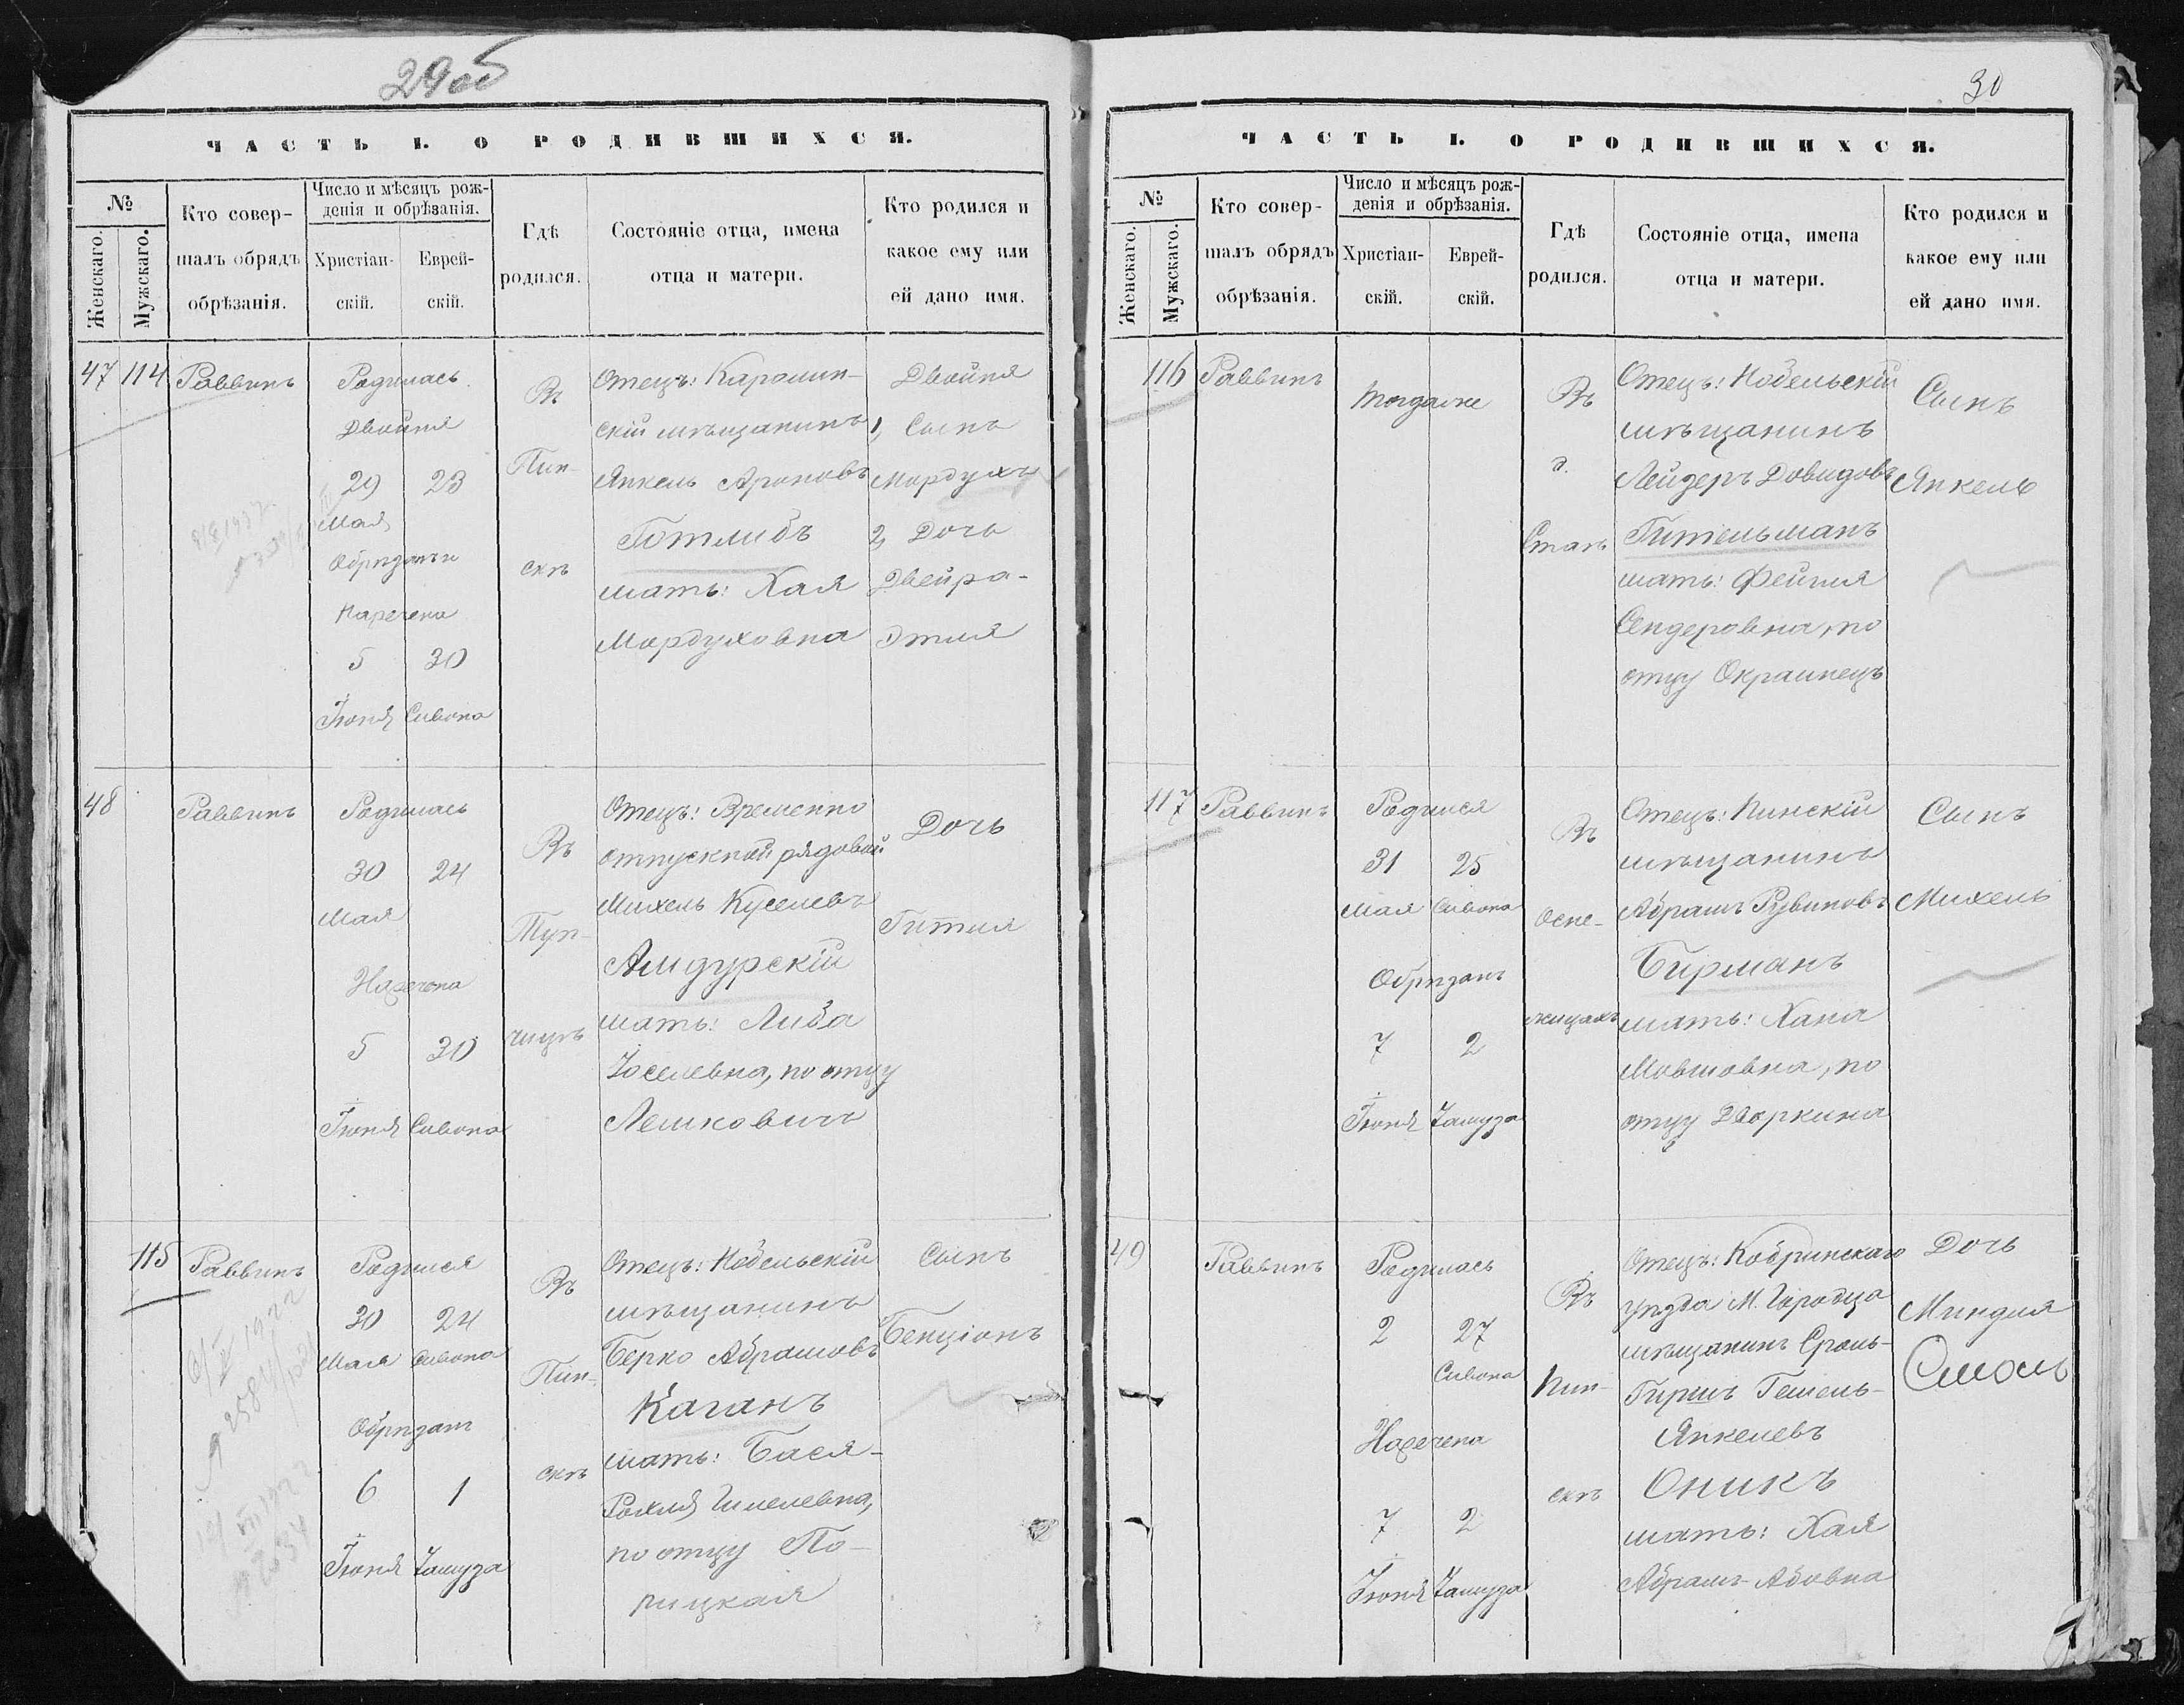 29об
ЧАСТЬ I. О РОДИВШИХСЯ.
№
Женскаго.
Мужскаго.
Кто совер-
шалъ обрядъ
обрѣзанія.
Число и мѣсяцъ рож-
денія и обрѣзанія.
Христіан-
скій.
Еврей-
скій.
Гдѣ
родился.
Состояніе отца, имена
отца и матери.
Кто родился и
какое ему или
ей дано имя.
47 114
Раввинъ
Родилась
Двойня
29 23
Мая
Обрѣзанъ и
Наречена
5 30
Іюня Сивона
Въ
Пин-
скѣ
Отецъ: Каролин-
скій мѣщанинъ
Янкель Ароновъ
Готлибъ
мать: Хая
Мордуховна
Двойня
1, Сынъ
Мордухъ
2, Дочь
Двейра-
Этля
48
Раввинъ
Родилась
30 24
Мая
Наречена
5 30
Іюня Сивона
Въ
Туп-
чицѣ
Отецъ: Временно
отпускной рядовой
Михель Куселевъ
Амдурскій
мать: Либа
Іоселевна, по отцу
Лешковичъ
Дочь
Гитля
115
Раввинъ
Родился
30 24
Мая Сивона
Обрѣзанъ
6 1
Іюня Тамуза
Въ
Пин-
скѣ
Отецъ: Нобельскій
мѣщанинъ
Берко Абрамовъ
Каганъ
мать: Бася-
Рохля Шмелевна,
по отцу По-
рицкая
Сынъ
Бенціонъ
30
ЧАСТЬ I. О РОДИВШИХСЯ.
№
Женскаго.
Мужскаго.
Кто совер-
шалъ обрядъ
обрѣзанія.
Число и мѣсяцъ рож-
денія и обрѣзанія.
Христіан-
скій.
Еврей-
скій.
Гдѣ
родился.
Состояніе отца, имена
отца и матери.
Кто родился и
какое ему или
ей дано имя.
116
Раввинъ
Тогдаже
Въ
д.
Ставъ
Отецъ: Нобельскій
мѣщанинъ
Лейзеръ Довидовъ
Гительманъ
мать: Фейгля
Сендеровна, по
отцу Окраинецъ
Сынъ
Янкель
117
Раввинъ
Родился
31 25
Мая Сивона
Обрѣзанъ
7 2
Іюня Тамуза
Въ
Осне-
жицахъ
Отецъ: Пинскій
мѣщанинъ
Абрамъ Рувиновъ
Бирманъ
мать: Хана
Мовшовна, по
отцу Дворкина
Сынъ
Михель
49
Раввинъ
Родилась
2 27
Сивона
Наречена
7 2
Іюня Тамуза
Въ
Пин-
скѣ
Отецъ: Кобринскаго
уѣзда М. Городца
мѣщанинъ Сроль-
Гиршъ Гешель-
Янкелевъ
Оникъ
мать: Хая
Абрамъ-Абовна
Дочь
Миндля